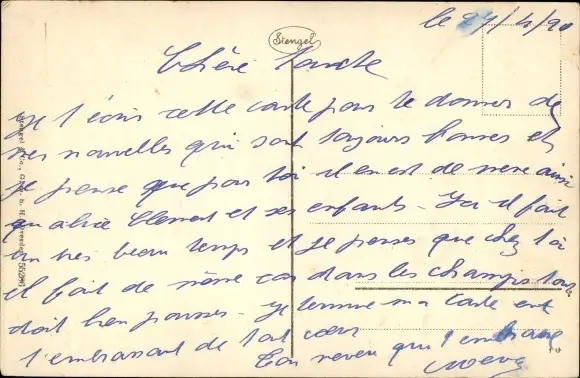 le 27/4/90
Stengel
Chère Tante
je t'écris cette carte pour te donner de
mes nouvelles qui sont toujours bonnes et
je pense que pour toi il en est de meme ainsi
qu'alice Clement et ses enfants - Ici il fait
un très beau temps et je penses que chez toi
il fait de même car dans les champs tous
doit bien pousser - je termine ma carte en
t'embrassant de tout cœur
Ton neveu qui t'embrasse
Stengel & Co., G.m.b.H., Dresden